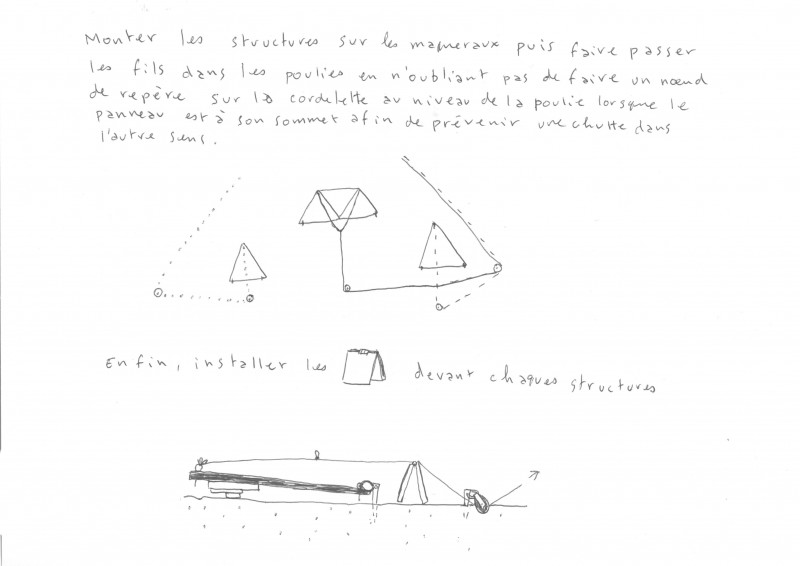 Monter les structures sur les mameraux puis faire passer
les fils dans les poulies en n'oubliant pas de faire un nœud
de repère sur la cordelette au niveau de la poulie lorsque le
panneau est à son sommet afin de prévenir une chutte dans
l'autre sens.
Enfin, installer les devant chaques structures